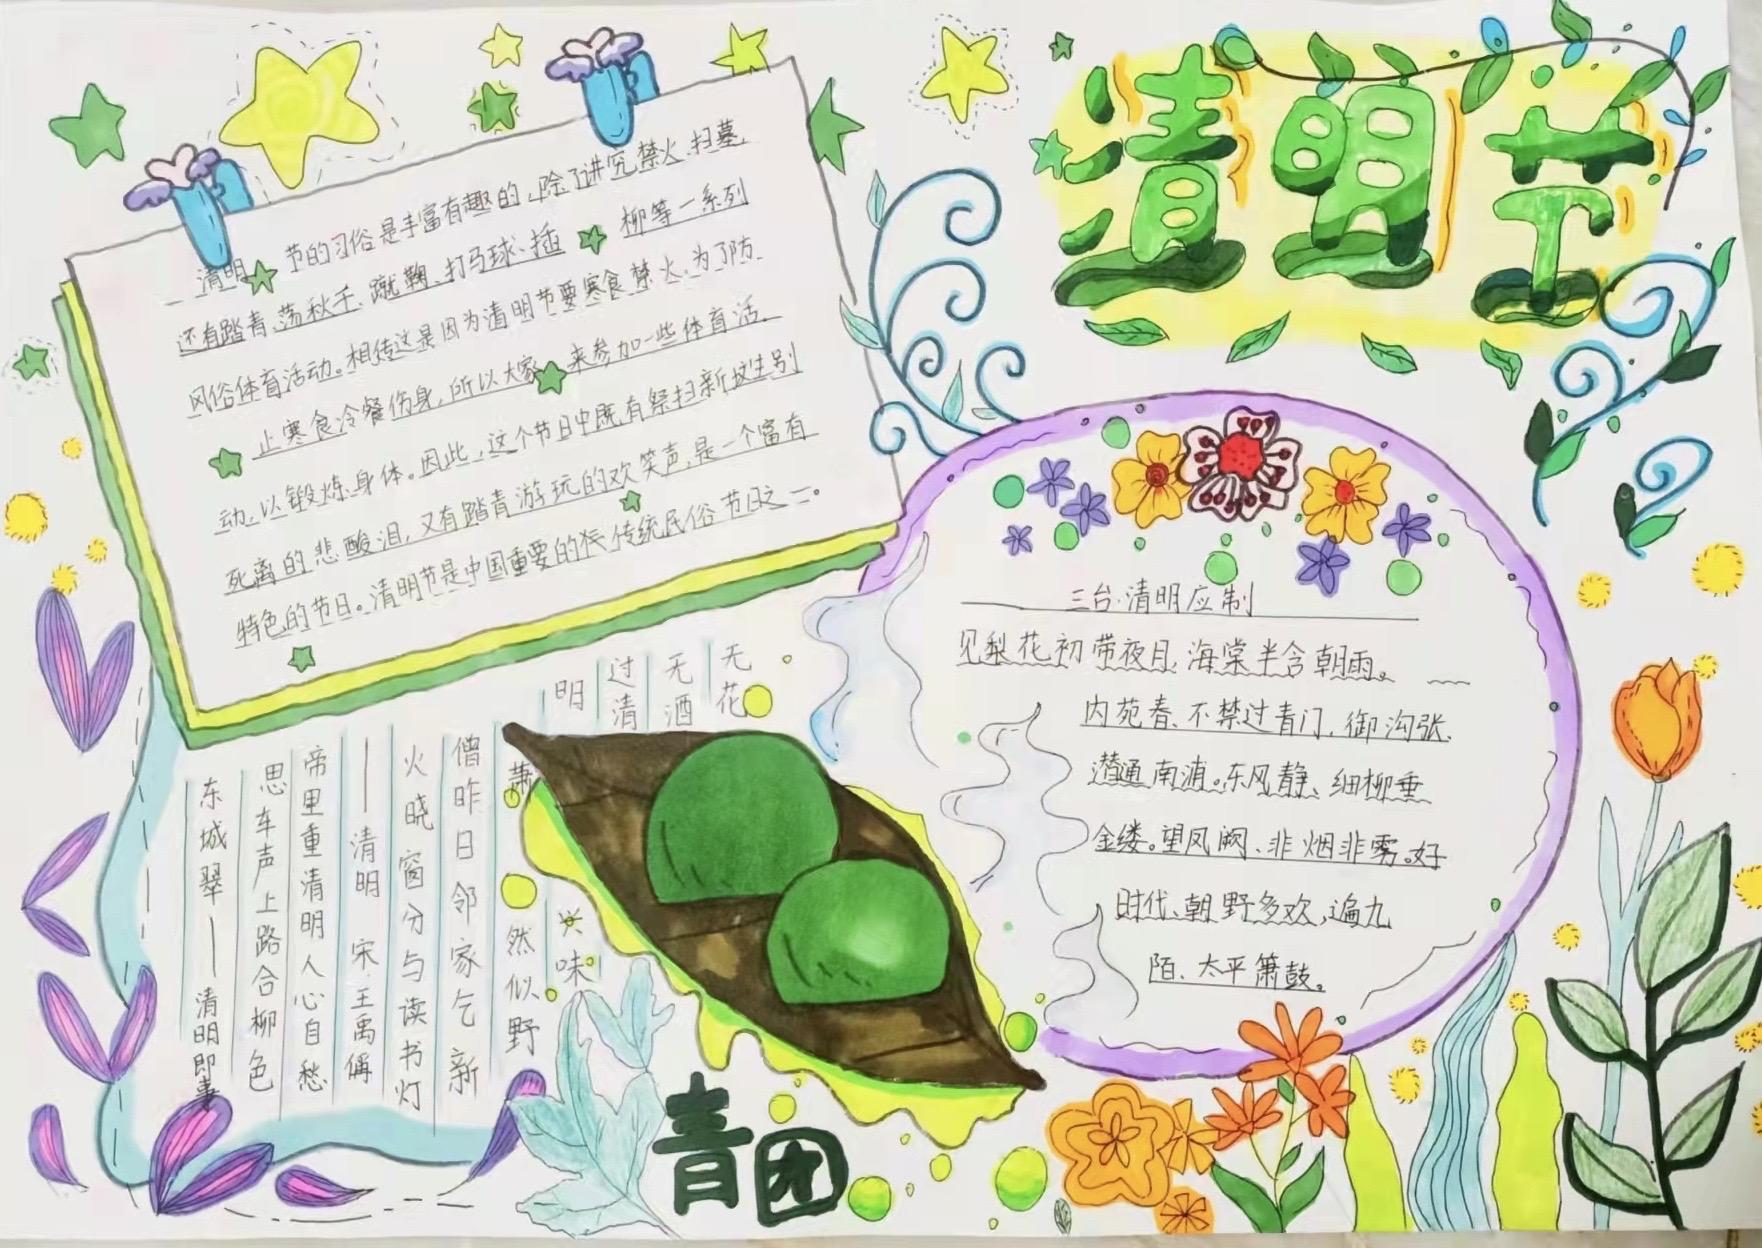 清明节
清明 节的习俗是丰富有趣的,除了讲究禁火、扫墓,
还有踏青、荡秋千、蹴鞠、打马球、插 柳等一系列
风俗体育活动。相传这是因为清明节要寒食禁火,为了防
止寒食冷餐伤身,所以大家 来参加一些体育活
动,以锻炼身体。因此,这个节日中既有祭扫新坟生别
死离的悲酸泪,又有踏青游玩的欢笑声,是一个富有
特色的节日。清明节是中国重要的 传统民俗节日之一。
三台·清明应制
见梨花初带夜月,海棠半含朝雨。
内苑春、不禁过青门,御沟涨、
潜通南浦。东风静、细柳垂
金缕。望凤阙、非烟非雾。好
时代、朝野多欢,遍九
陌、太平箫鼓。
无花
无酒
过清
明 兴味
萧然似野
僧昨日邻家乞新
火晓窗分与读书灯
——清明 宋·王禹偁
帝里重清明人心自愁
思车声上路合柳色
东城翠——清明即事
青团